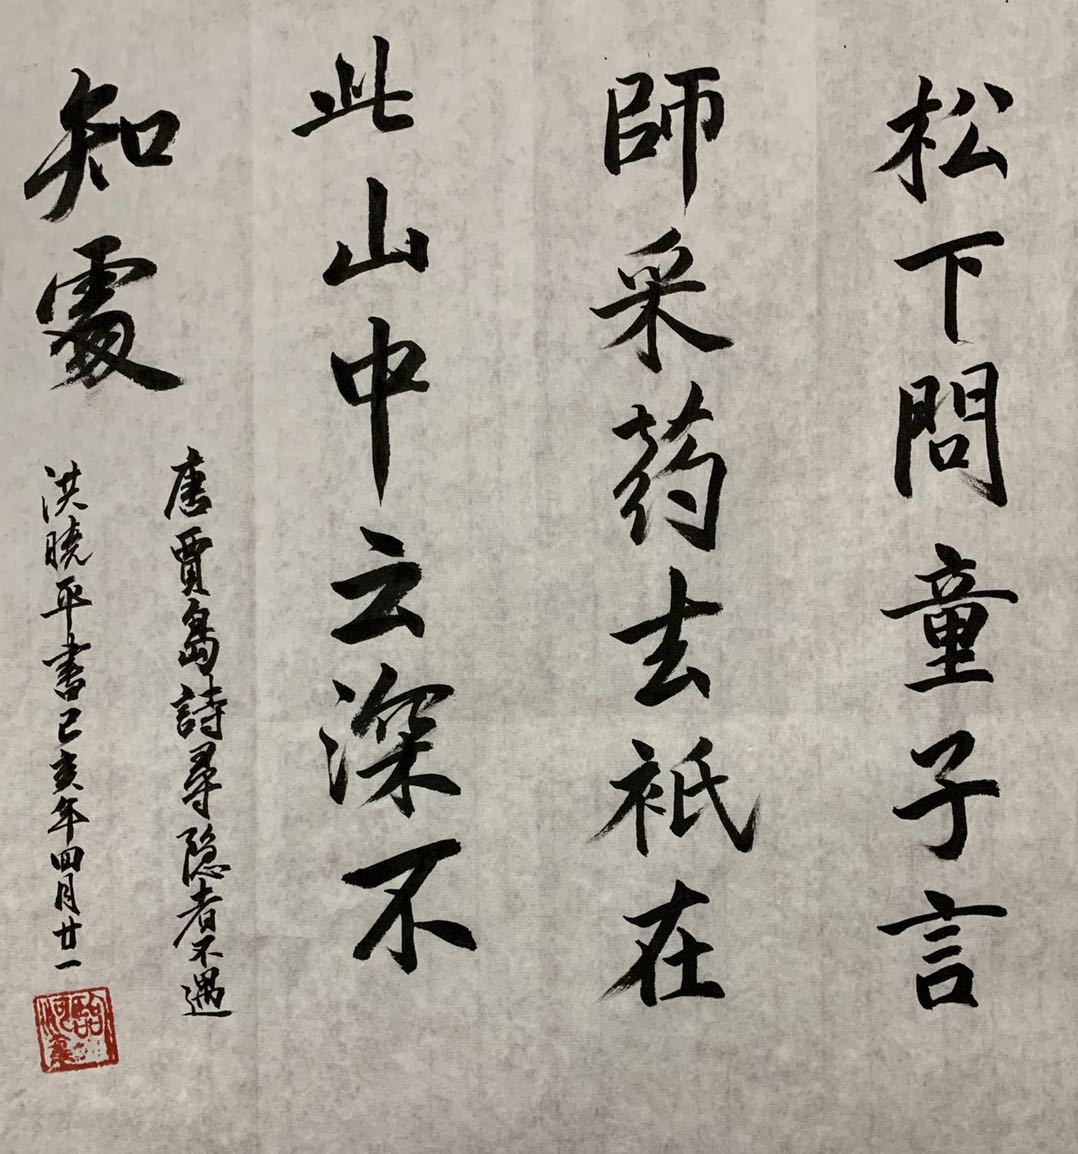 松下問童子言
師采药去祇在
此山中云深不
知處
唐賈島詩尋隐者不遇
洪曉平書己亥年四月廿一